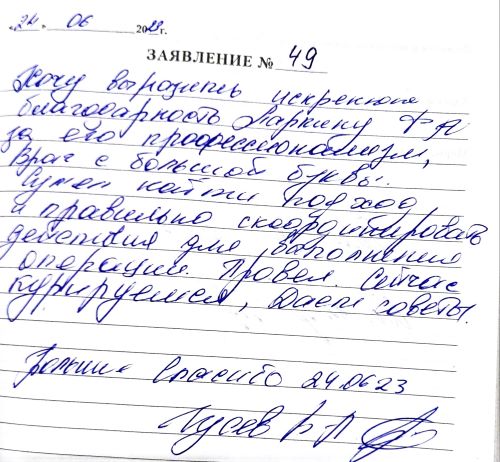 «24» 06 2023 г.
ЗАЯВЛЕНИЕ № 49
Хочу выразить искреннюю
благодарность Ларкину ФА
за его профессионализм,
Врач с большой буквы.
Сумел найти подход
и правильно скоординировать
действия для выполнения
операции. Провел. Сейчас
курируемся, Дает советы.
Большое Спасибо 24.06.23
Гусев В Л